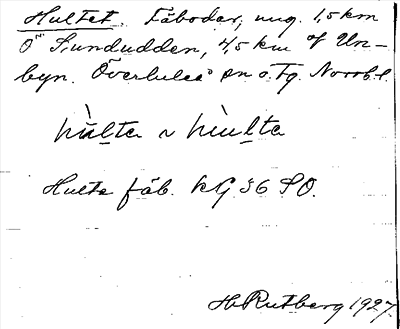 Hultet. Fäbodar, ung. 1,5 km
O Sundudden, 4,5 km af Un-
byn. Överluleå sn o. Tg. Norrb. l.
hùlta ~ hùlta
Hulta fäb. KG 36 SO.
H. Rutberg 1927